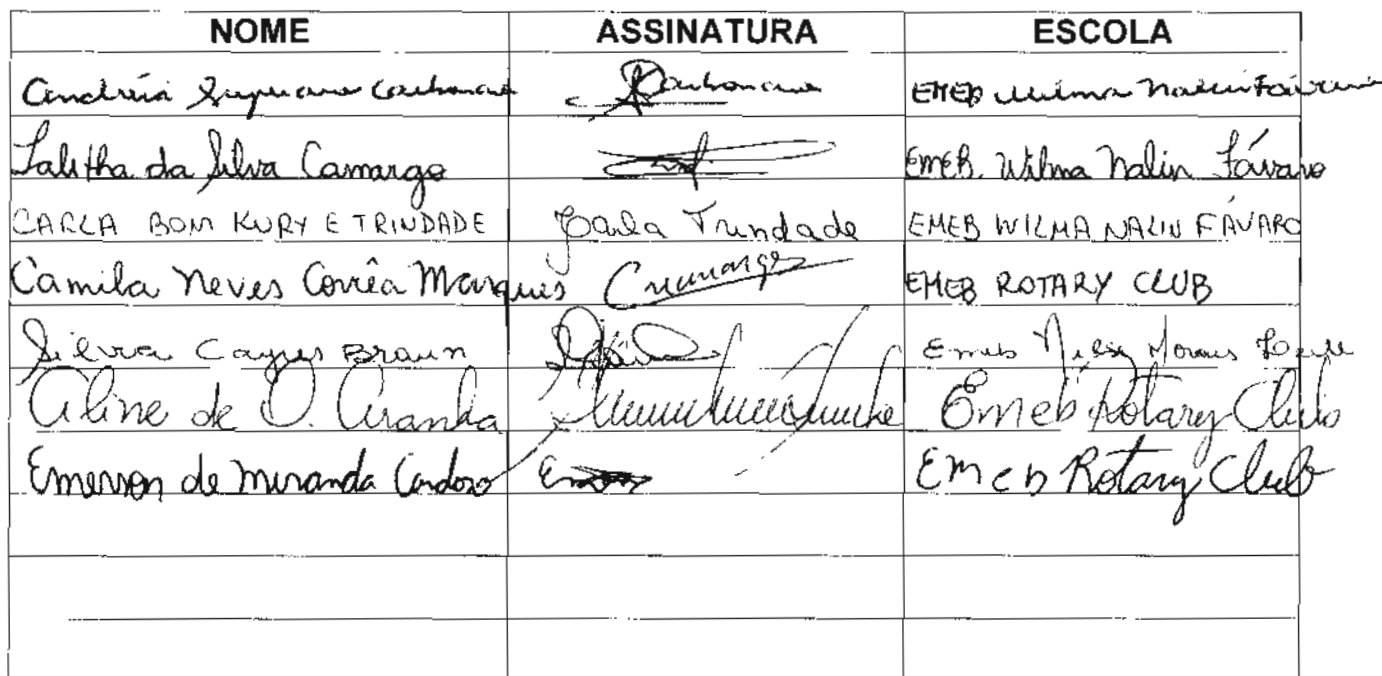 NOME ASSINATURA ESCOLA
Andréia Carbonari EMEB Wilma Nalin Fávaro
Talitha da Silva Camargo EMEB. Wilma Nalin Fávaro
CARLA BOM KURY E TRINDADE Carla Trindade EMEB WILMA NALIN FÁVARO
Camila Neves Corrêa Marques EMEB ROTARY CLUB
Silvia Braun Emeb Moraes
Aline de O. Aranha Emeb Rotary Club
Emerson de Miranda Cardoso EMEB Rotary Club